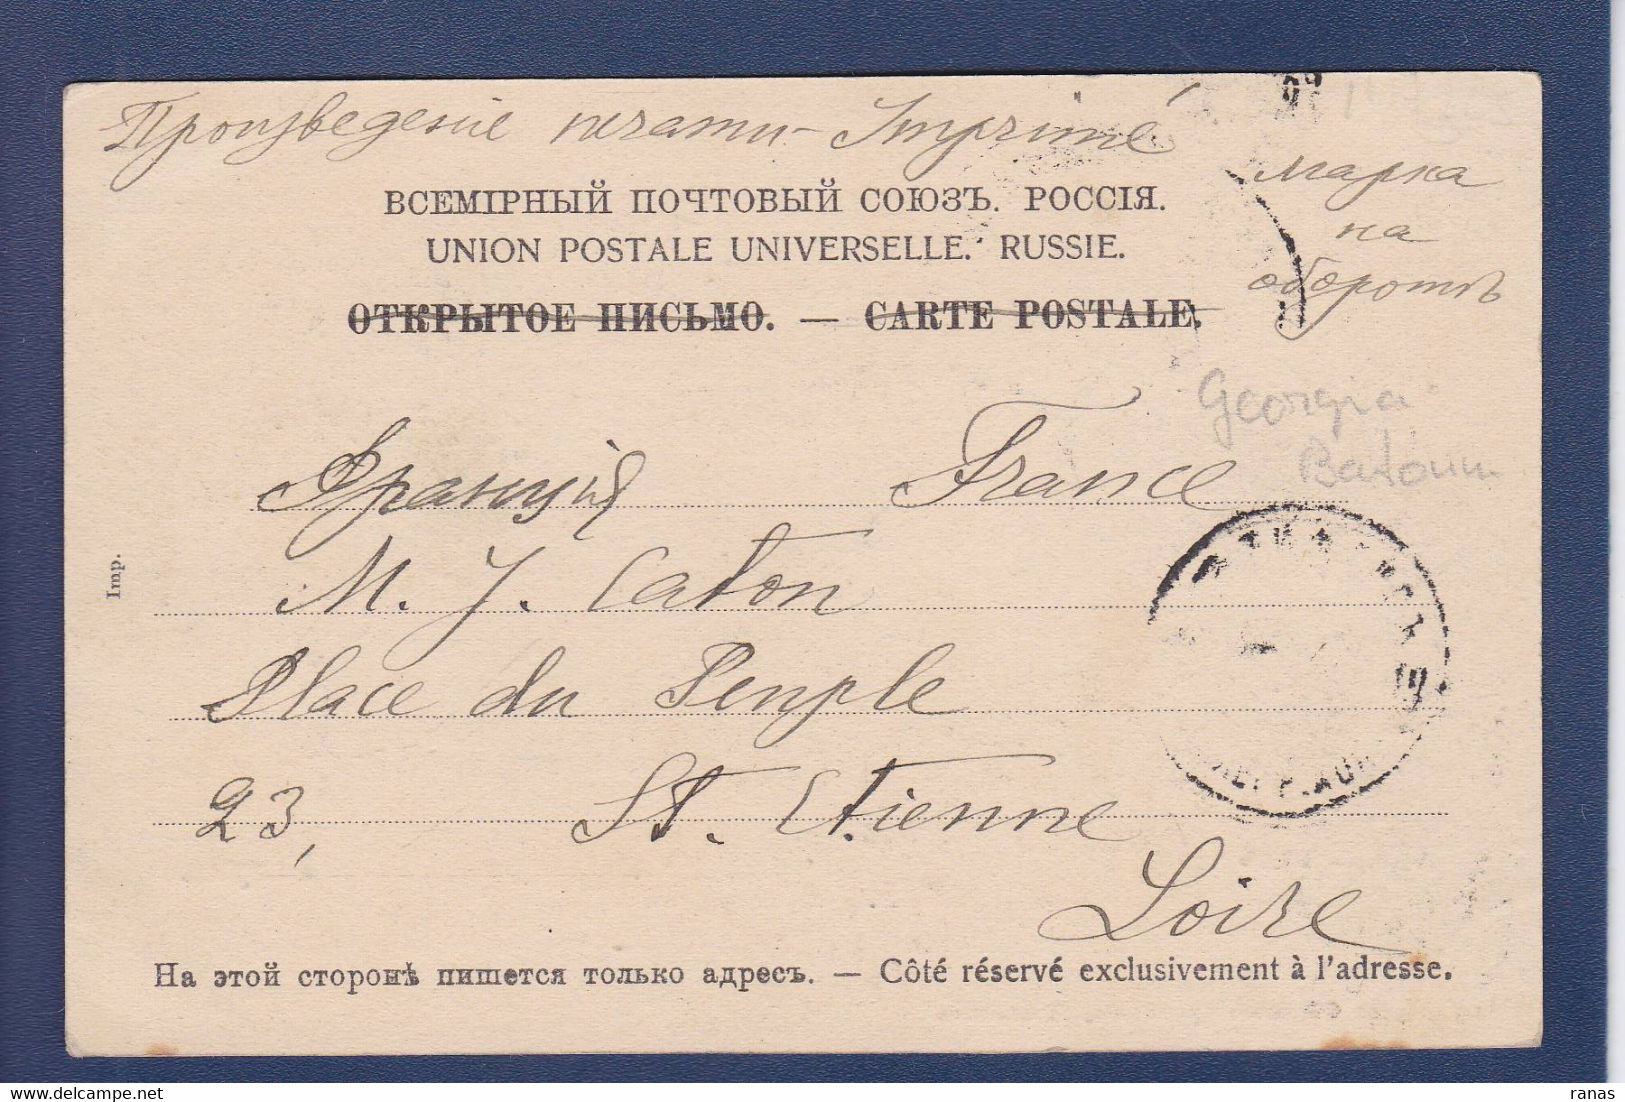 Произведеніе печати - Imprimé
марка
на
оборотѣ
ВСЕМІРНЫЙ ПОЧТОВЫЙ СОЮЗЪ. РОССІЯ.
UNION POSTALE UNIVERSELLE. RUSSIE.
ОТКРЫТОЕ ПИСЬМО. — CARTE POSTALE.
Georgia
Batoum
Франція France
M. J. Caton
Place du Peuple
23, St. Etienne
Loire
Imp.
На этой сторонѣ пишется только адресъ. — Côté réservé exclusivement à l'adresse.
ranas